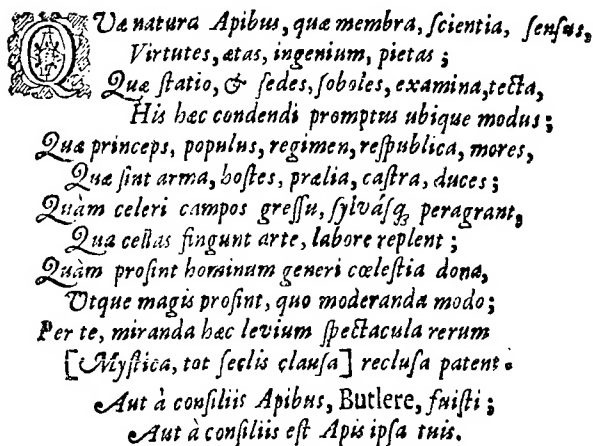 QUæ natura Apibus, quæ membra, ſcientia, ſenſus,
Virtutes, ætas, ingenium, pietas;
Quæ ſtatio, & ſedes, ſoboles, examina, tecta,
His hæc condendi promptus ubique modus;
Quæ princeps, populus, regimen, reſpublica, mores,
Quæ ſint arma, hoſtes, prælia, caſtra, duces;
Quàm celeri campos greſſu, ſylváſq; peragrant,
Qua cellas fingunt arte, labore replent;
Quàm proſint hominum generi cœleſtia dona,
Utque magis proſint, quo moderanda modo;
Per te, miranda hæc levium ſpectacula rerum
[Myſtica, tot ſeclis clauſa] recluſa patent.
Aut à conſiliis Apibus, Butlere, fuiſti;
Aut à conſiliis eſt Apis ipſa tuis.